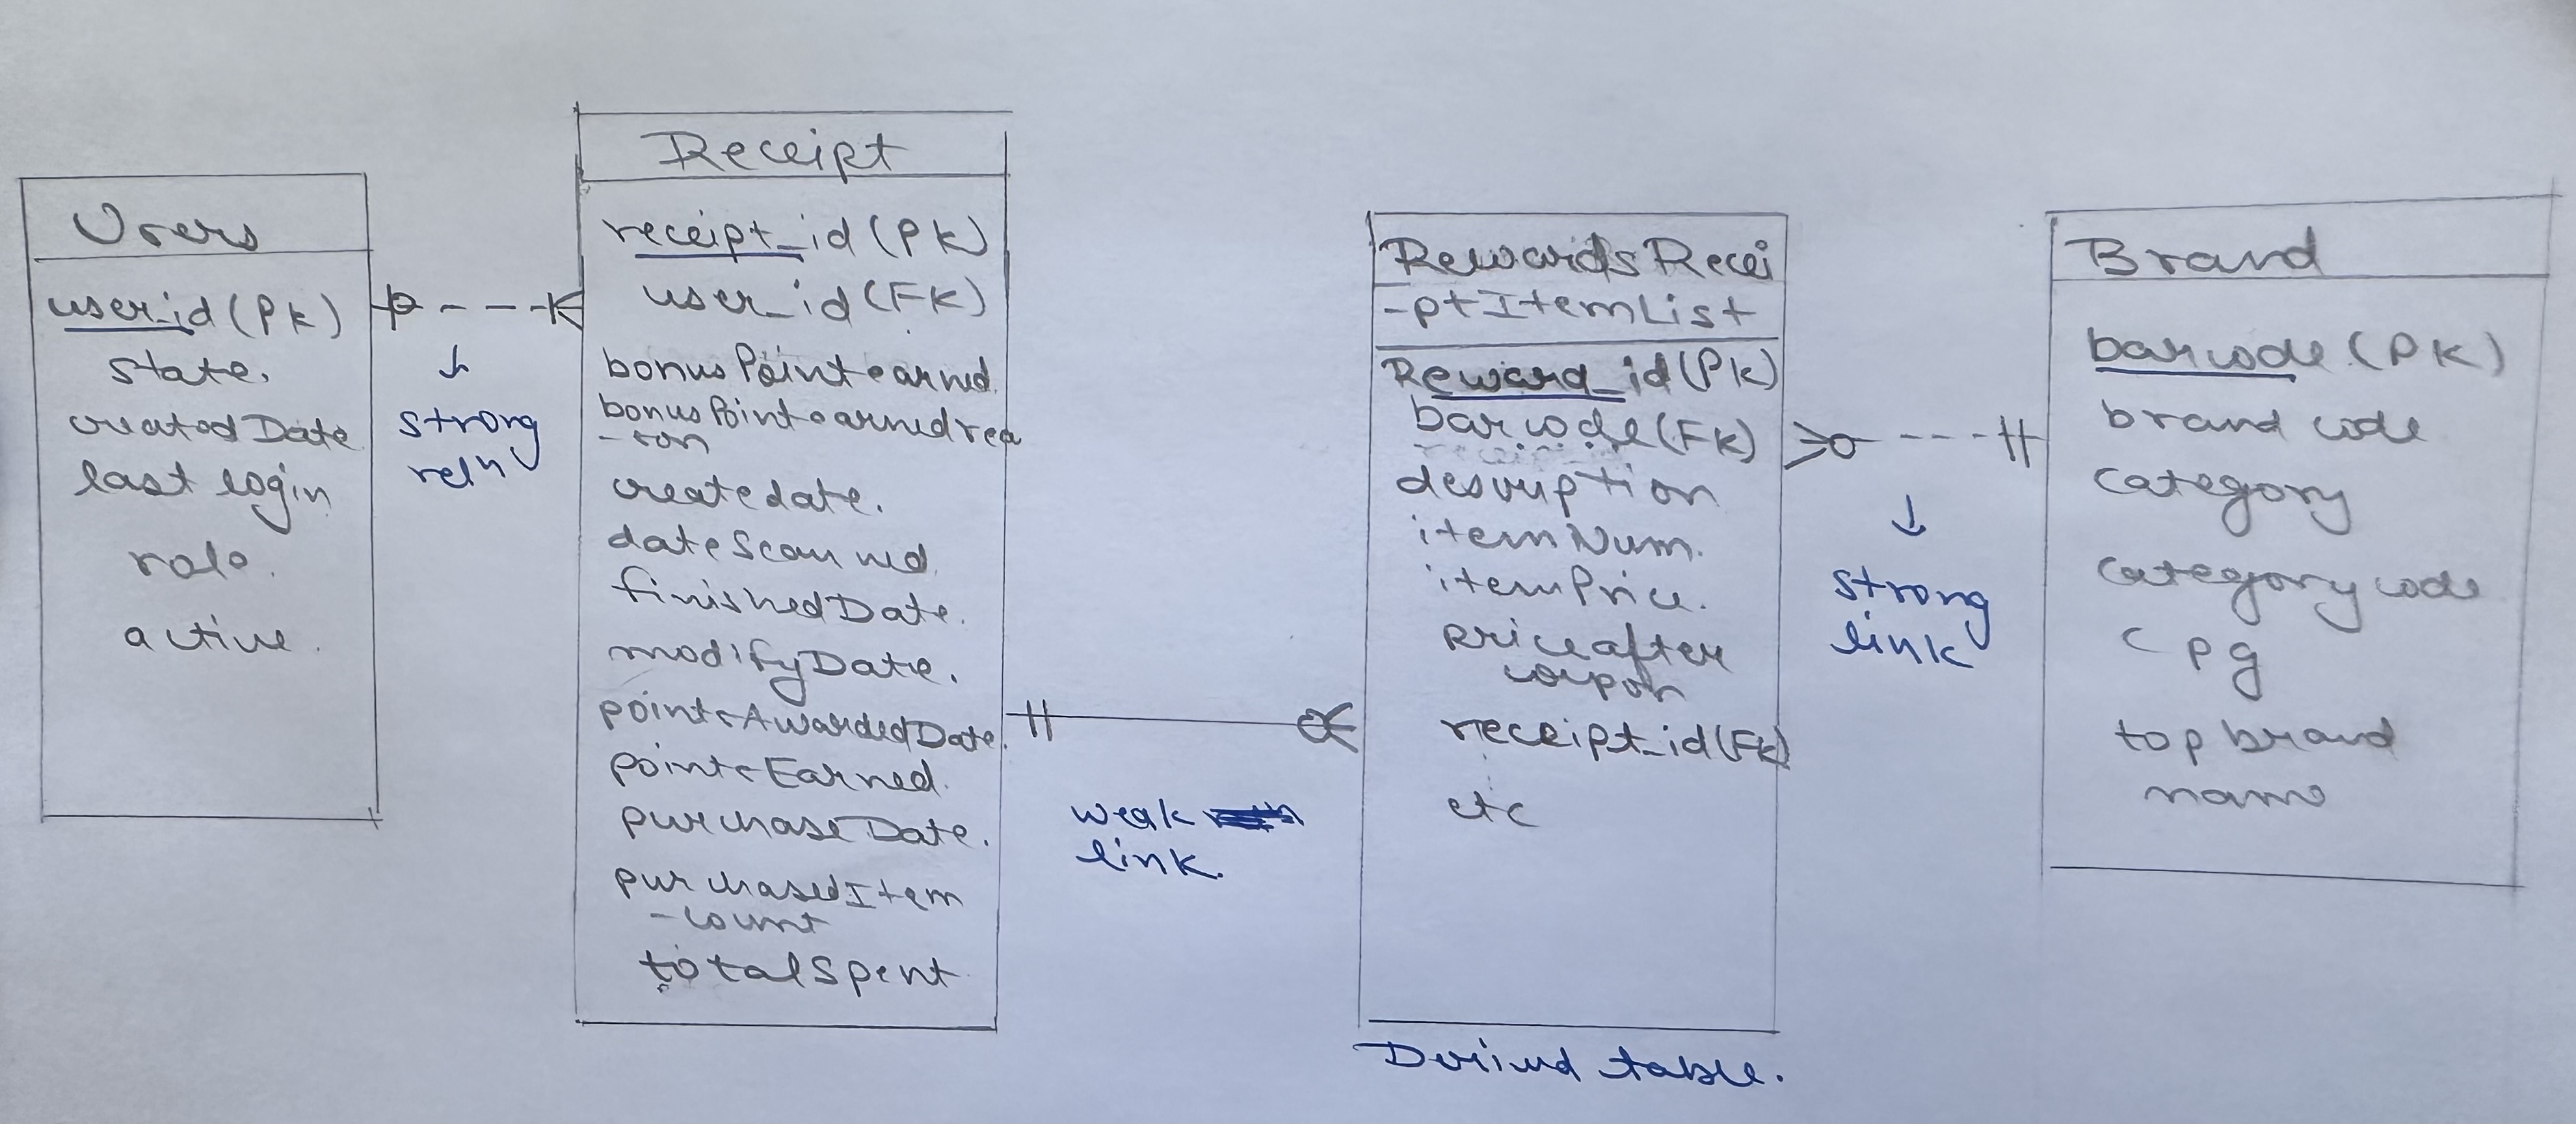 Users
user_id (PK)
state.
createdDate
last login
role.
active.
strong
reln
Receipt
receipt_id (PK)
user_id (FK)
bonusPointearned
bonusPointearnedrea
-son
createdate.
dateScanned
finishedDate.
modifyDate.
pointsAwardedDate.
pointsEarned.
purchaseDate.
purchasedItem
-count
totalSpent
weak
link.
RewardsRecei
-ptItemList
Reward_id (PK)
barcode (FK)
description
itemNum.
itemPrice.
priceafter
coupon
receipt_id (FK)
etc
Derived table.
strong
link
Brand
barcode (PK)
brand code
category
category code
cpg
top brand
name